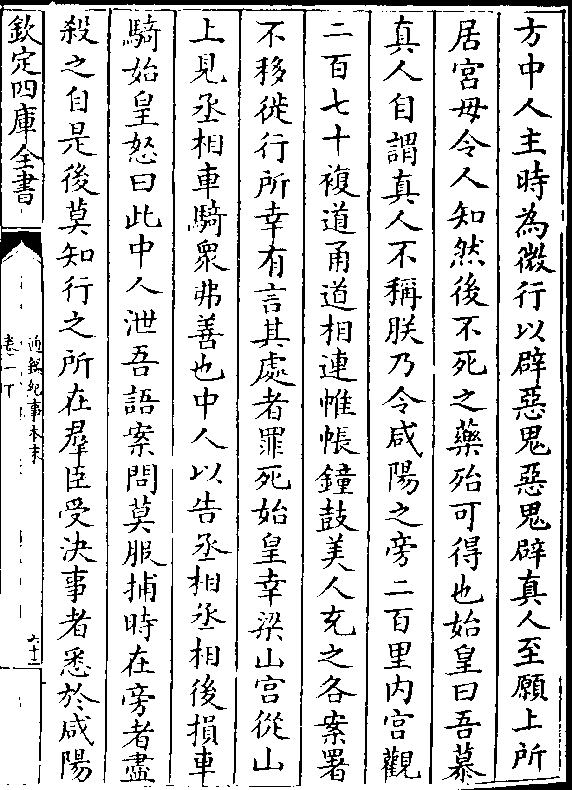 方中人主時為微行以辟惡鬼惡鬼辟真人至願上所
居宮毋令人知然後不死之藥殆可得也始皇曰吾慕
真人自謂真人不稱朕乃令咸陽之旁二百里内宮觀
二百七十複道甬道相連帷帳鐘鼓美人充之各案署
不移徙行所幸有言其處者罪死始皇幸梁山宮從山
上見丞相車騎衆弗善也中人以告丞相丞相後損車
騎始皇怒曰此中人泄吾語案問莫服捕時在旁者盡
殺之自是後莫知行之所在羣臣受决事者悉於咸陽
欽定四庫全書
通鑑紀事本末
卷一下
六十二